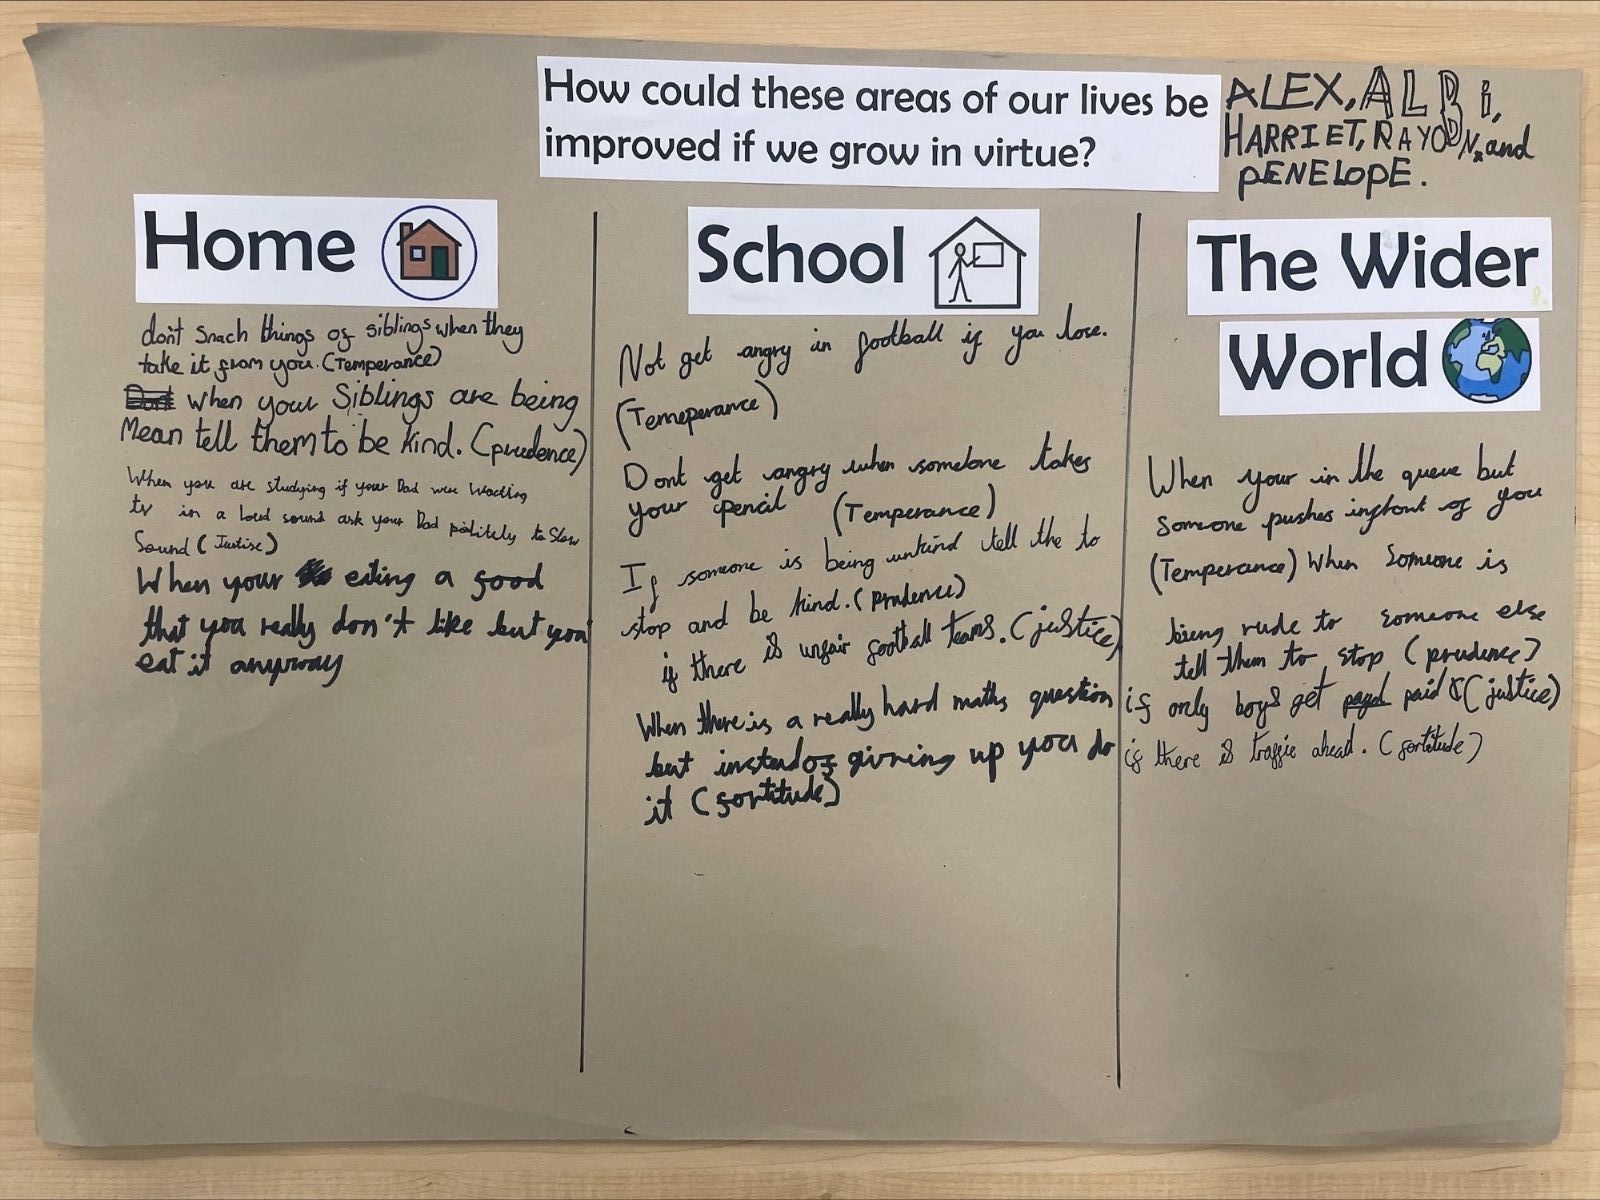 How could these areas of our lives be
improved if we grow in virtue?
ALEX, ALBi,
HARRIET, RAYODN, and
PENELOPE.
Home
don't Snach things of siblings when they
take it from you. (Temperance)
when your Siblings are being
Mean tell them to be kind. (prudence)
When you are studying if your Dad were Watching
tv in a loud sound ask your Dad politely to Slow
Sound (Justise)
When your eating a food
that you really don't like but you
eat it anyway
School
Not get angry in football if you lose.
(Temeperance)
Dont get angry when someone takes
your pencil (Temperance)
If someone is being unkind tell the to
stop and be kind. (prudence)
if there is unfair football teams. (justice)
When there is a really hard maths question
but insted of giving up you do
it (fortitude)
The Wider
World
When your in the queue but
someone pushes infront of you
(Temperance) When someone is
being rude to someone else
tell them to stop (prudence)
if only boys get paid (justice)
if there is traffic ahead. (fortitude)